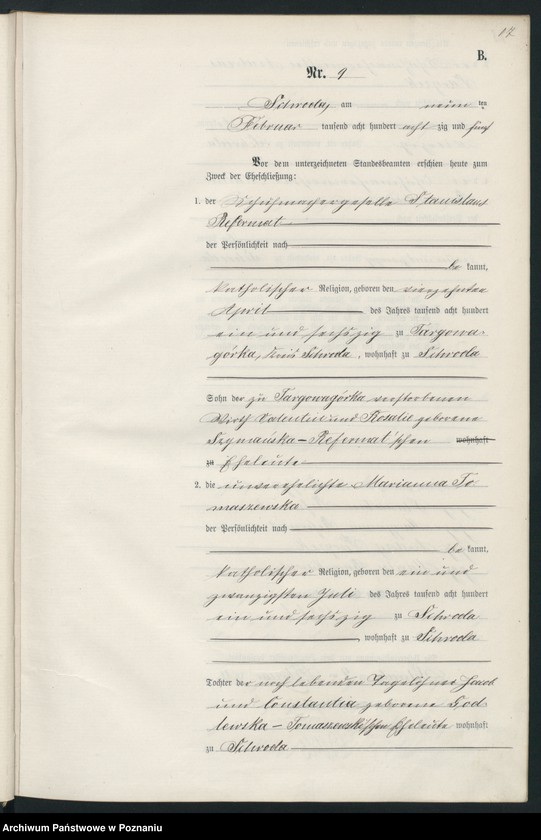 17
B.
Nr. 9
Schroda, am neun ten
Februar tausend acht hundert acht zig und fünf
Vor dem unterzeichneten Standesbeamten erschien heute zum
Zweck der Eheschließung:
1. der Schuhmachergeselle Stanislaus
Reformat
der Persönlichkeit nach
be kannt,
katholischer Religion, geboren den vierzehnten
April des Jahres tausend acht hundert
ein und sechszig zu Targowa-
górka, Kreis Schroda, wohnhaft zu Schroda
Sohn der zu Targowagórka verstorbenen
Wirth Valentin und Rosalie geborene
Szymańska - Reformat'schen wohnhaft
zu Eheleute
2. die unverehelichte Marianna To
maszewska
der Persönlichkeit nach
be kannt,
katholischer Religion, geboren den ein und
zwanzigsten Juli des Jahres tausend acht hundert
ein und sechszig zu Schroda
, wohnhaft zu Schroda
Tochter der noch lebenden Tagelöhner Jacob
und Constantia geborene God
lewska - Tomaszewski'schen Eheleute wohnhaft
zu Schroda
Archiwum Państwowe w Poznaniu